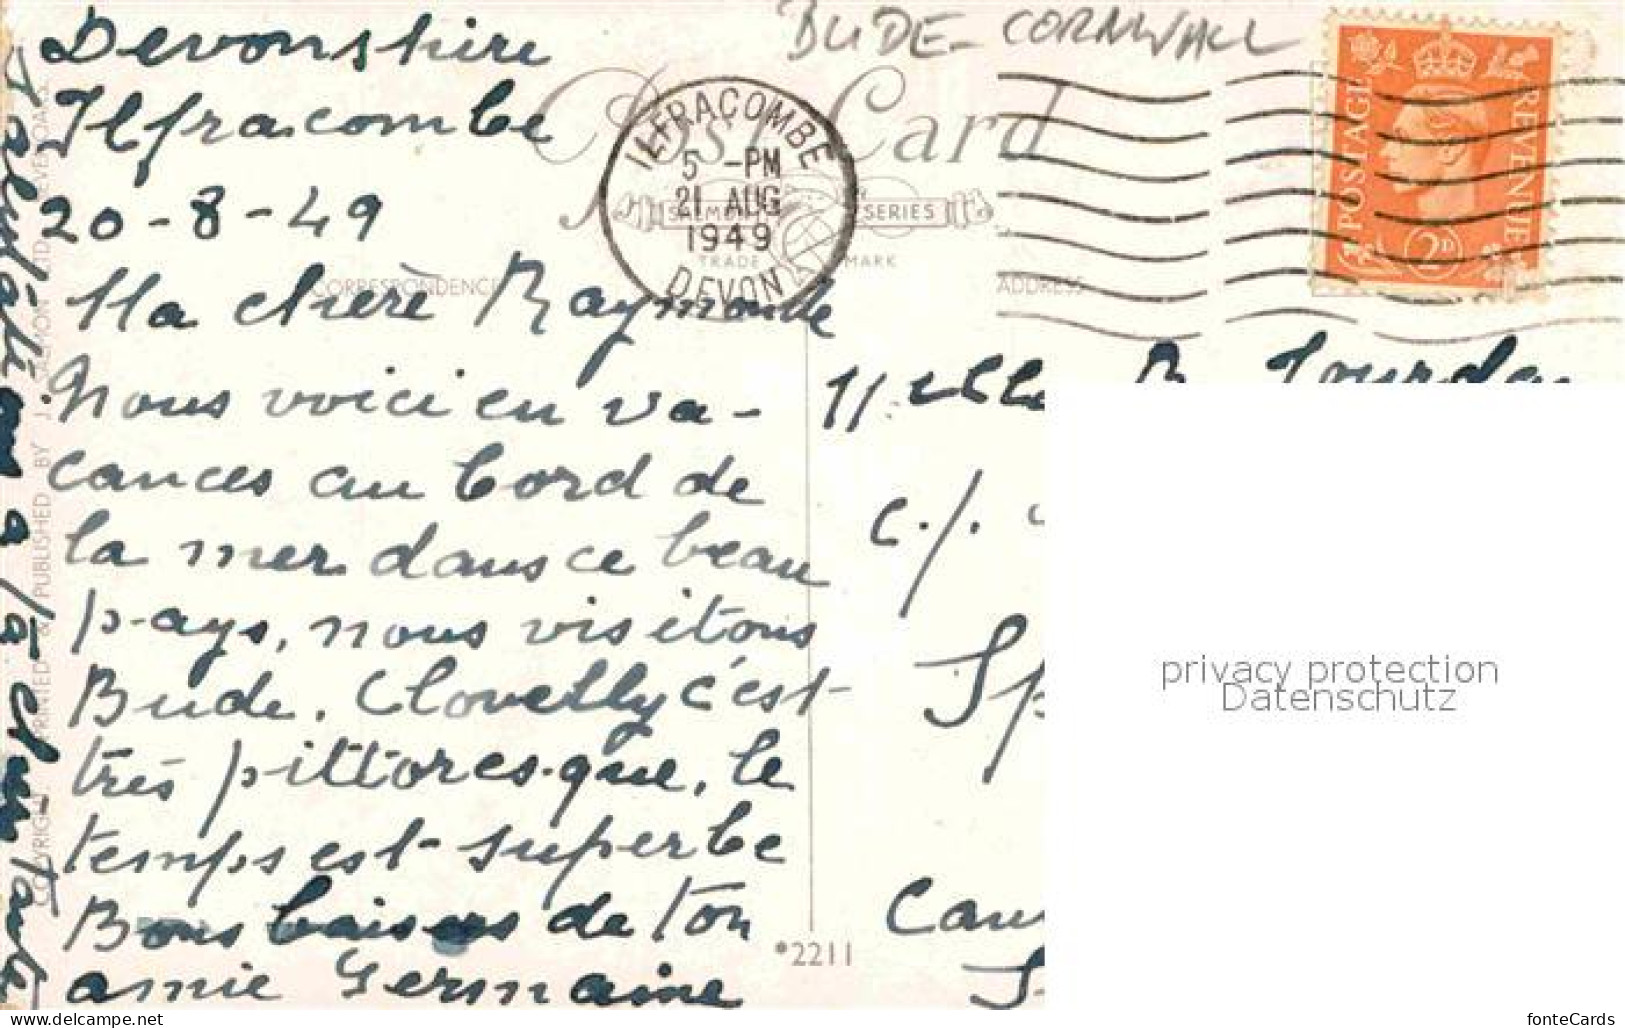 Devonshire
BUDE - CORNWALL
Ilfracombe
20-8-49
Post Card
ILFRACOMBE
5 -PM
21 AUG
1949
DEVON
SERIES
TRADE MARK
POSTAGE
REVENUE
2D
CORRESPONDENCE
ADDRESS
Ma chère Raymonde
Nous voici en va-
cances au bord de
la mer dans ce beau
pays, nous visitons
Bude, Clovelly c'est
très pittoresque, le
temps est superbe
Bons baisers de ton
amie Germaine
à la chère Tante
COPYRIGHT PRINTED & PUBLISHED BY J. SALMON LTD SEVENOAKS
*2211
c/.
privacy protection
Datenschutz
https://www.delcampe.net
fonteCards